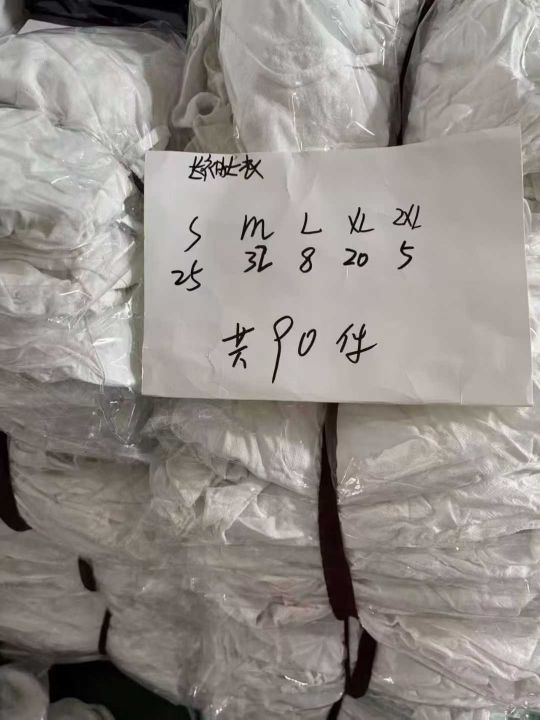 长袖
S M L XL 2XL
25 32 8 20 5
共90件